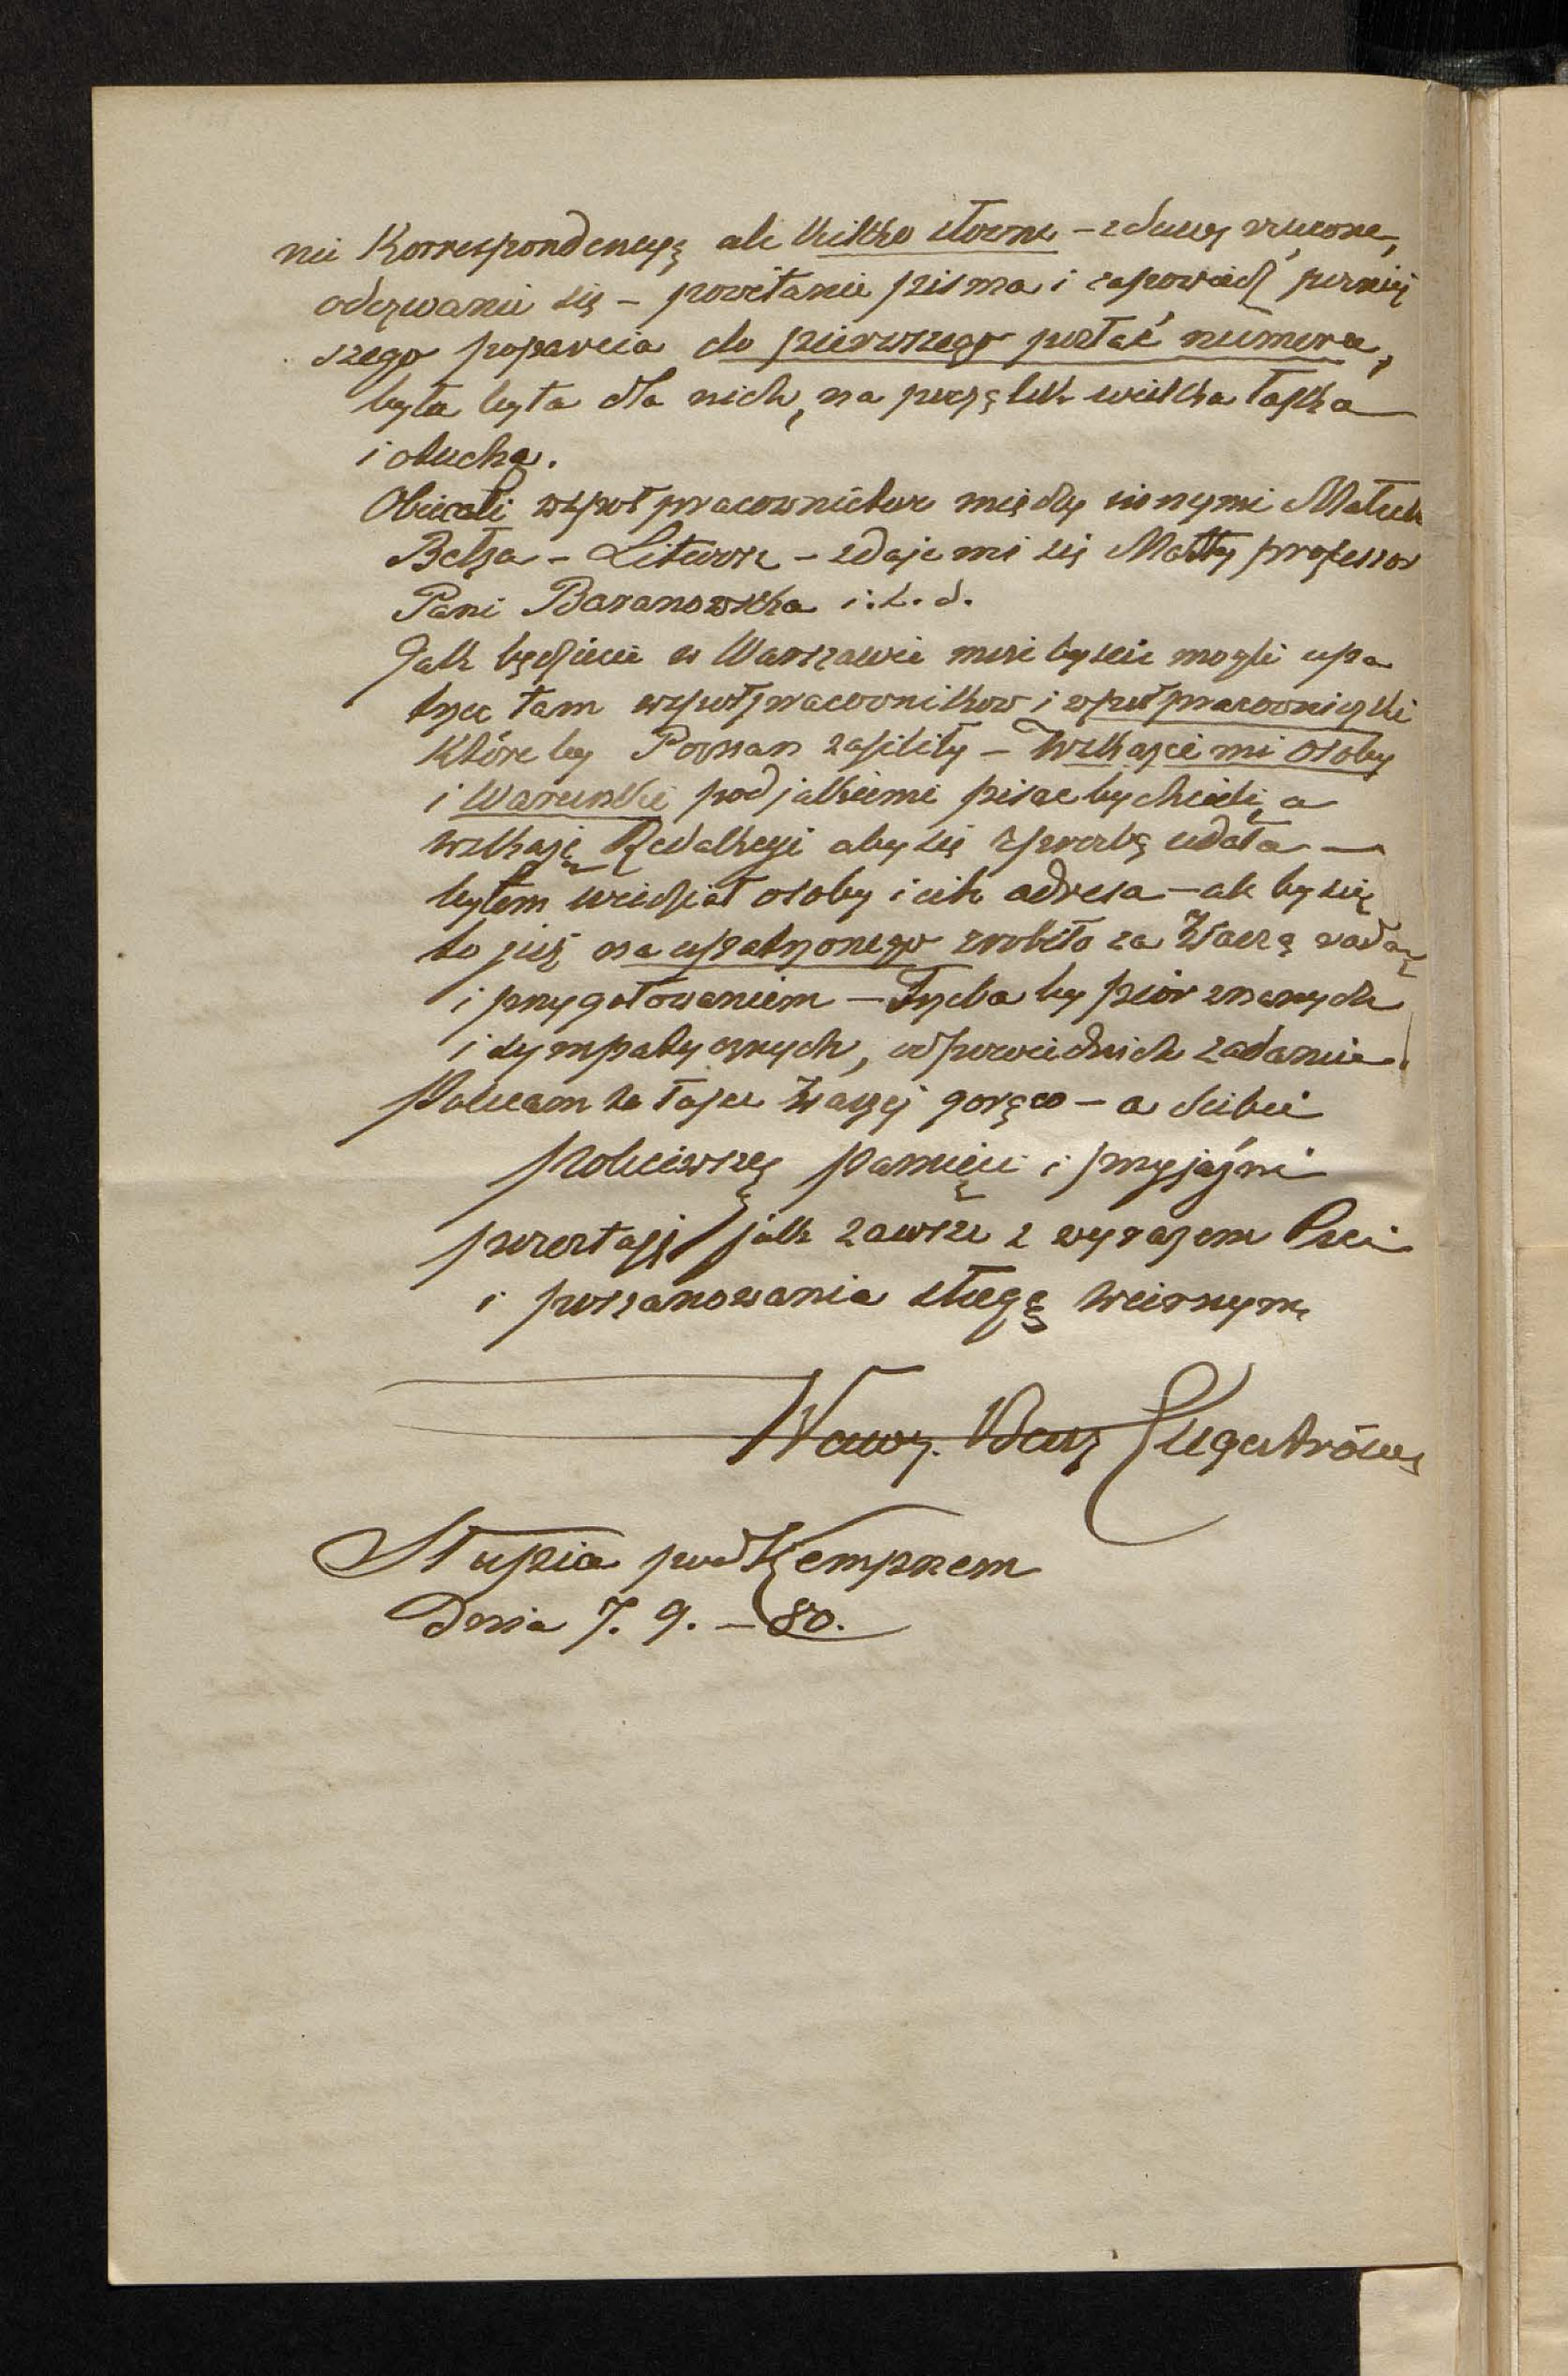 nie Korrespondencyą ale kilka słowne – z duszy rzucone,
odezwanie się – powitanie pisma i zapowiedź pózniej
szego poparcia do pierwszego posłać numeru,
była była dla nich, na początek wielka łaska
i otucha.
Obiecali współpracownictwo między innymi
Bełza – – zdaje mi się Mátty professor
Pani Baranowska i.t.d.
Jak będziecie w Warszawie możebyście mogli upa
tryć tam współpracowników i współpracowniczki
któreby Poznań zasiliły – Wskażcie mi osoby
i Warunki pod jakiemi pisać by chcieli, a
wskażę Redakcyi aby się z prozbą udała —
byłem wiedział osoby i ich adresa – ale by się
to już na upatrzonego zrobiło za Waszą radą
i przygotowaniem – Trzeba by piór znanych
i sympatycznych, odpowiednich zadaniu.
Polecam to łasce Waszej gorąco – a siebie
poleciwszy pamięci i przyjaźni
pozostaję jak zawsze z wyrazem Czci
i poszanowania sługą wiernym
Wawrz. Benz Engeström
Słupia pod Kempnem
Dnia 7. 9. – 80.